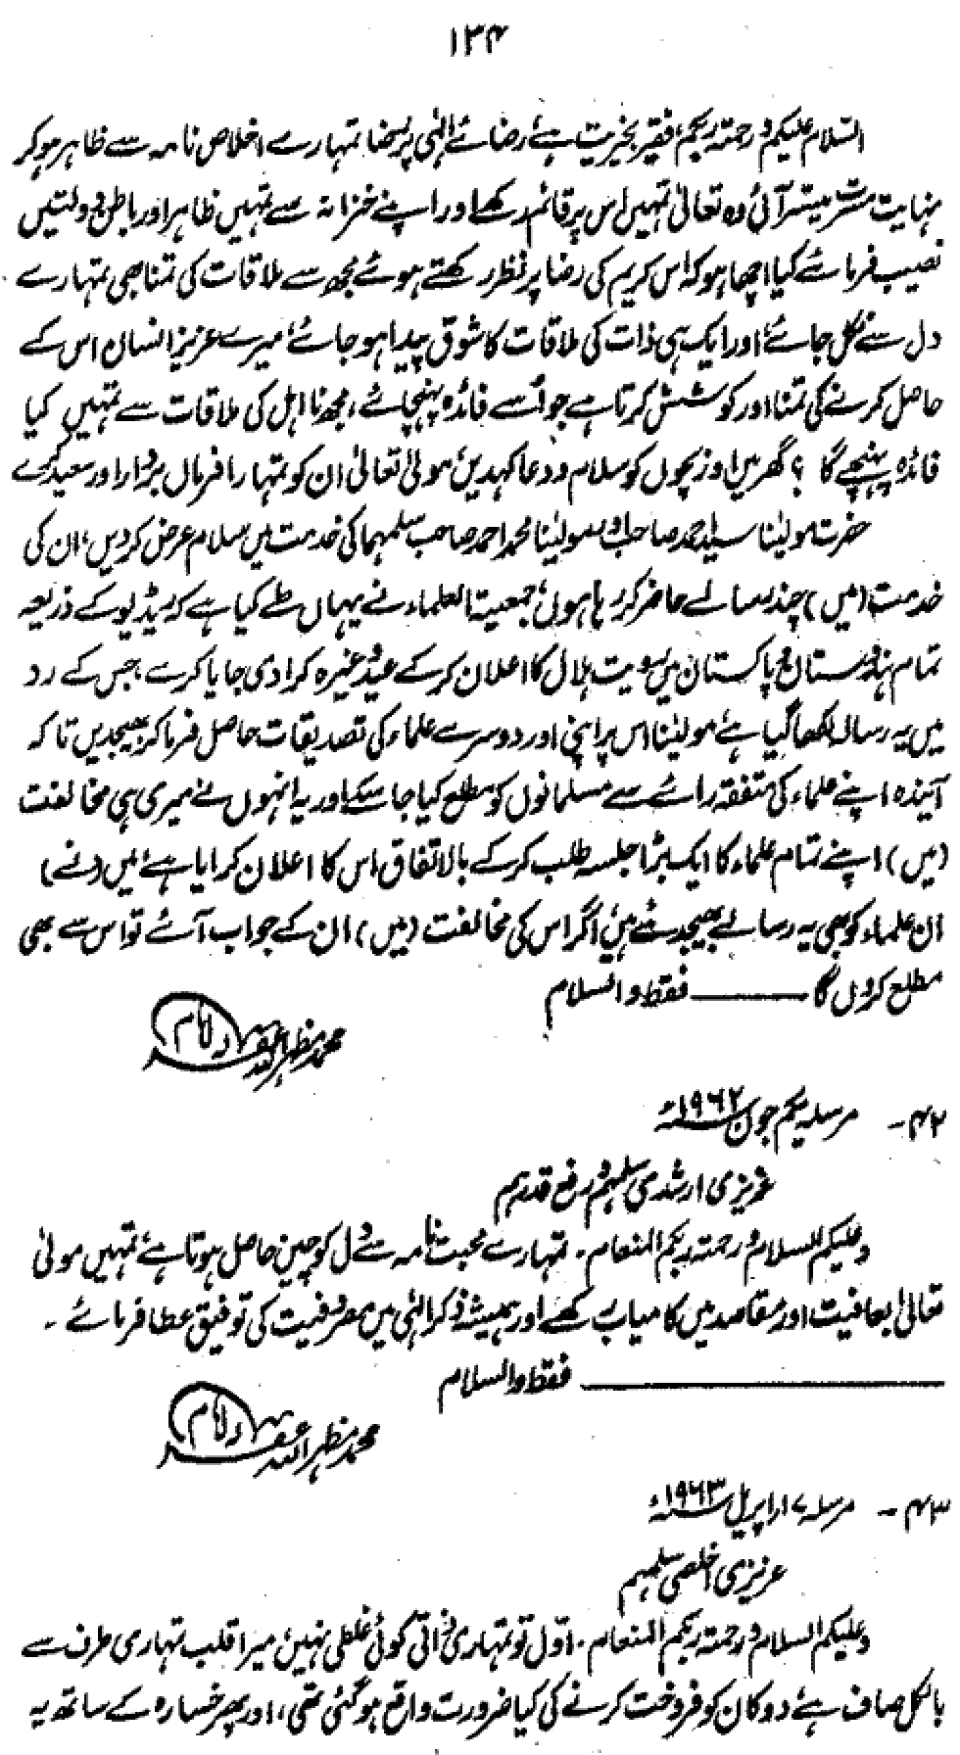 ۱۳۴
السلام علیکم ورحمۃ ربکم، فقیر بخیریت ہے، رضائے الٰہی پر رضا تمہارے اخلاص نامہ سے ظاہر ہو کر
نہایت مسرت میسر آئی وہ تعالیٰ تمہیں اس پر قائم رکھے اور اپنے خزانہ سے تمہیں ظاہر اور باطن دولتیں
نصیب فرمائے کیا اچھا ہو کہ اس کریم کی رضا پر نظر رکھتے ہوئے مجھ سے ملاقات کی تمنا بھی تمہارے
دل سے نکل جائے، اور ایک ہی ذات کی ملاقات کا شوق پیدا ہو جائے، میرے عزیز انسان اس کے
حاصل کرنے کی تمنا اور کوشش کرتا ہے جو اُسے فائدہ پہنچائے، مجھ نا اہل کی ملاقات سے تمہیں کیا
فائدہ پہنچے گا ؟ گھر میں اور بچوں کو سلام و دعا کہدیں، مولیٰ تعالیٰ ان کو تمہارا فرماں بردار اور سعید رکھے
حضرت مولیٰنا سید احمد صاحب و مولیٰنا محمد احمد صاحب سلمہما کی خدمت میں سلام عرض کر دیں، ان کی
خدمت (میں) چند رسالے حاضر کر رہا ہوں، جمعیۃ العلماء نے یہاں طے کیا ہے کہ ریڈیو کے ذریعہ
تمام ہندوستان و پاکستان میں رویت ہلال کا اعلان کر کے عید وغیرہ کرا دی جایا کرے، جس کے رد
میں یہ رسالہ لکھا گیا ہے، مولیٰنا اس پر اپنی اور دوسرے علماء کی تصدیقات حاصل فرما کر بھیجدیں تا کہ
آیندہ اپنے علماء کی متفقہ رائے سے مسلمانوں کو مطلع کیا جا سکے اور یہ انہوں نے میری ہی مخالفت
(میں) اپنے تمام علماء کا ایک بڑا جلسہ طلب کر کے بالاتفاق اس کا اعلان کرایا ہے، میں (نے)
ان علماء کو بھی یہ رسالے بھیجدئے ہیں، اگر اس کی مخالفت (میں) ان کے جواب آئے تو اس سے بھی
مطلع کروں گا ——— فقط والسلام
محمد مظہر اللہ غفرلہ
۴۲ - مرسلہ یکم جون ۱۹۶۲ء
عزیزی ارشدی سلمہم و رفع قدرہم
وعلیکم السلام ورحمۃ ربکم المنعام۔ تمہارے محبت نامہ سے دل کو چین حاصل ہوتا ہے، تمہیں مولیٰ
تعالیٰ بعافیت اور مقاصد میں کامیاب رکھے اور ہمیشہ ذکر الٰہی میں مصروفیت کی توفیق عطا فرمائے۔
——————— فقط والسلام
محمد مظہر اللہ غفرلہ
۴۳ - مرسلہ ۷ اپریل ۱۹۶۳ء
عزیزی اخلصی سلمہم
وعلیکم السلام ورحمۃ ربکم المنعام۔ اوّل تو تمہاری ذاتی کوئی غلطی نہیں، میرا قلب تمہاری طرف سے
بالکل صاف ہے، دوکان کو فروخت کرنے کی کیا ضرورت واقع ہو گئی تھی، اور پھر خسارہ کے ساتھ یہ